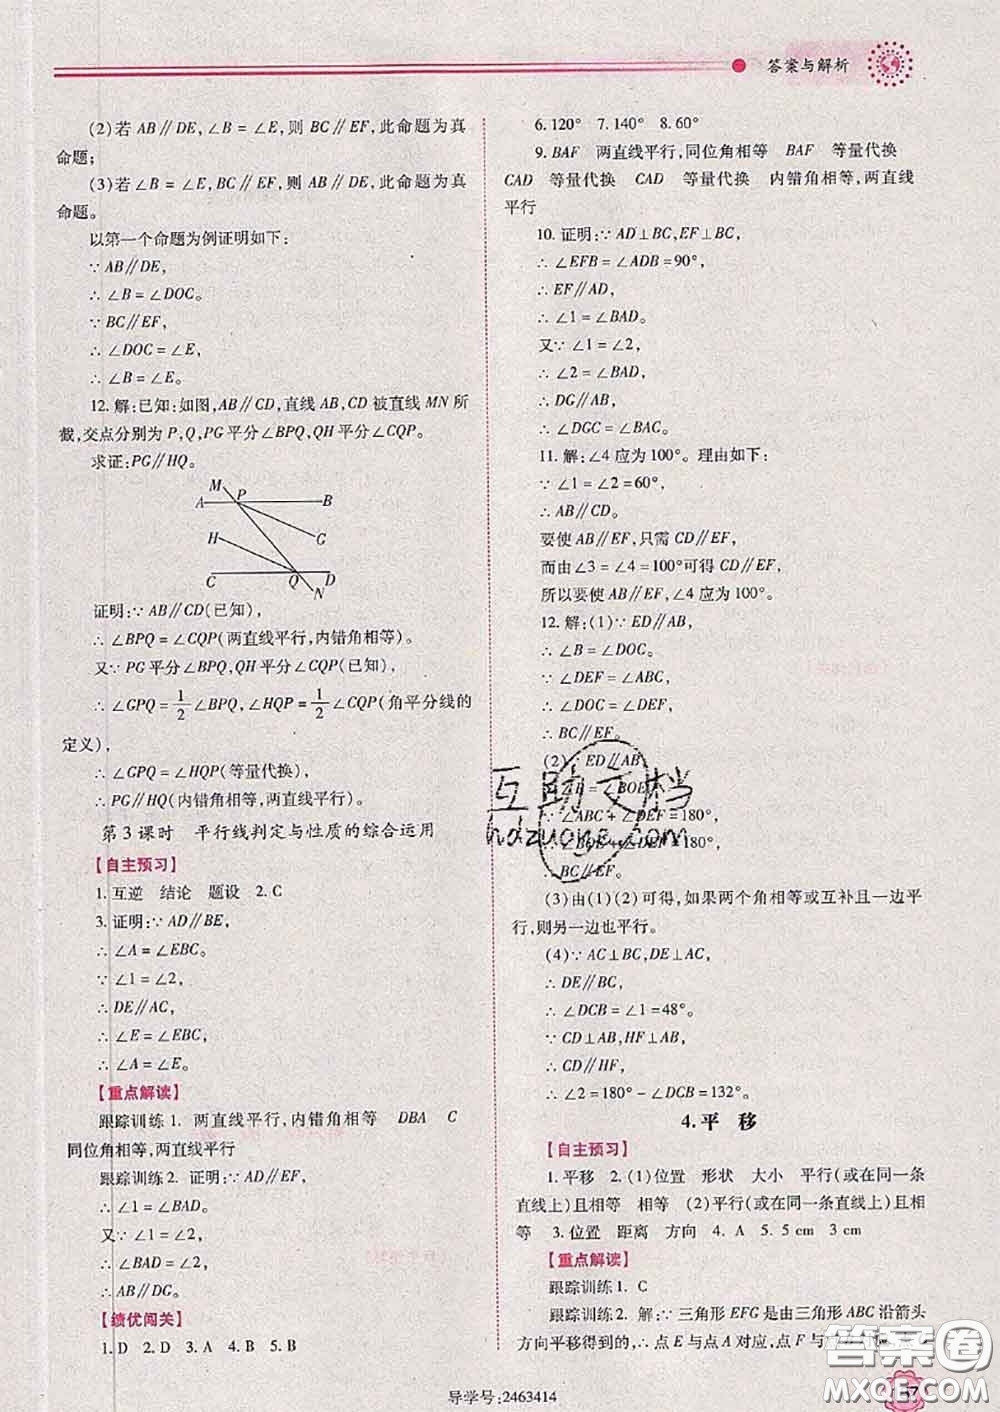 答案与解析
(2)若 AB∥DE,∠B=∠E,则 BC∥EF,此命题为真
命题;
(3)若∠B=∠E,BC∥EF,则 AB∥DE,此命题为真
命题。
以第一个命题为例证明如下:
∵AB∥DE,
∴∠B=∠DOC。
∵BC∥EF,
∴∠DOC=∠E,
∴∠B=∠E。
12.解:已知:如图,AB∥CD,直线 AB,CD 被直线 MN 所
截,交点分别为 P,Q,PG平分∠BPQ,QH平分∠CQP。
求证:PG∥HQ。
M
A P B
H G
C Q D
N
证明:∵AB∥CD(已知),
∴∠BPQ=∠CQP(两直线平行,内错角相等)。
又∵PG平分∠BPQ,QH平分∠CQP(已知),
∴∠GPQ=1/2∠BPQ,∠HQP=1/2∠CQP(角平分线的
定义),
∴∠GPQ=∠HQP(等量代换),
∴PG∥HQ(内错角相等,两直线平行)。
第3课时 平行线判定与性质的综合运用
【自主预习】
1.互逆 结论 题设 2.C
3.证明:∵AD∥BE,
∴∠A=∠EBC。
∵∠1=∠2,
∴DE∥AC,
∴∠E=∠EBC,
∴∠A=∠E。
【重点解读】
跟踪训练1. 两直线平行,内错角相等 DBA C
同位角相等,两直线平行
跟踪训练2. 证明:∵AD∥EF,
∴∠1=∠BAD。
又∵∠1=∠2,
∴∠BAD=∠2,
∴AB∥DG。
【绩优闯关】
1.D 2.D 3.A 4.B 5.B
6.120° 7.140° 8.60°
9.BAF 两直线平行,同位角相等 BAF 等量代换
CAD 等量代换 CAD 等量代换 内错角相等,两直线
平行
10.证明:∵AD⊥BC,EF⊥BC,
∴∠EFB=∠ADB=90°,
∴EF∥AD,
∴∠1=∠BAD。
又∵∠1=∠2,
∴∠2=∠BAD,
∴DG∥AB,
∴∠DGC=∠BAC。
11.解:∠4应为100°。理由如下:
∵∠1=∠2=60°,
∴AB∥CD。
要使 AB∥EF,只需 CD∥EF,
而由∠3=∠4=100°可得 CD∥EF,
所以要使 AB∥EF,∠4应为100°。
12.解:(1)∵ED∥AB,
∴∠B=∠DOC。
∵∠DEF=∠ABC,
∴∠DOC=∠DEF,
∴BC∥EF。
(2)∵ED∥AB
∴∠B=∠BOE
∵∠ABC+∠DEF=180°,
∴∠BOE+∠DEF=180°,
∴BC∥EF。
(3)由(1)(2)可得,如果两个角相等或互补且一边平
行,则另一边也平行。
(4)∵AC⊥BC,DE⊥AC,
∴DE∥BC,
∴∠DCB=∠1=48°。
∵CD⊥AB,HF⊥AB,
∴CD∥HF,
∴∠2=180°-∠DCB=132°。
4.平 移
【自主预习】
1.平移 2.(1)位置 形状 大小 平行(或在同一条
直线上)且相等 相等 (2)平行(或在同一条直线上)且相
等 3.位置 距离 方向 4.A 5.5 cm 3 cm
【重点解读】
跟踪训练1. C
跟踪训练2. 解:∵三角形EFG是由三角形ABC沿箭头
方向平移得到的,∴点E与点A对应,点F与
互助文档
hdzuoye.com
答案圈
MXQE.COM
导学号:2463414